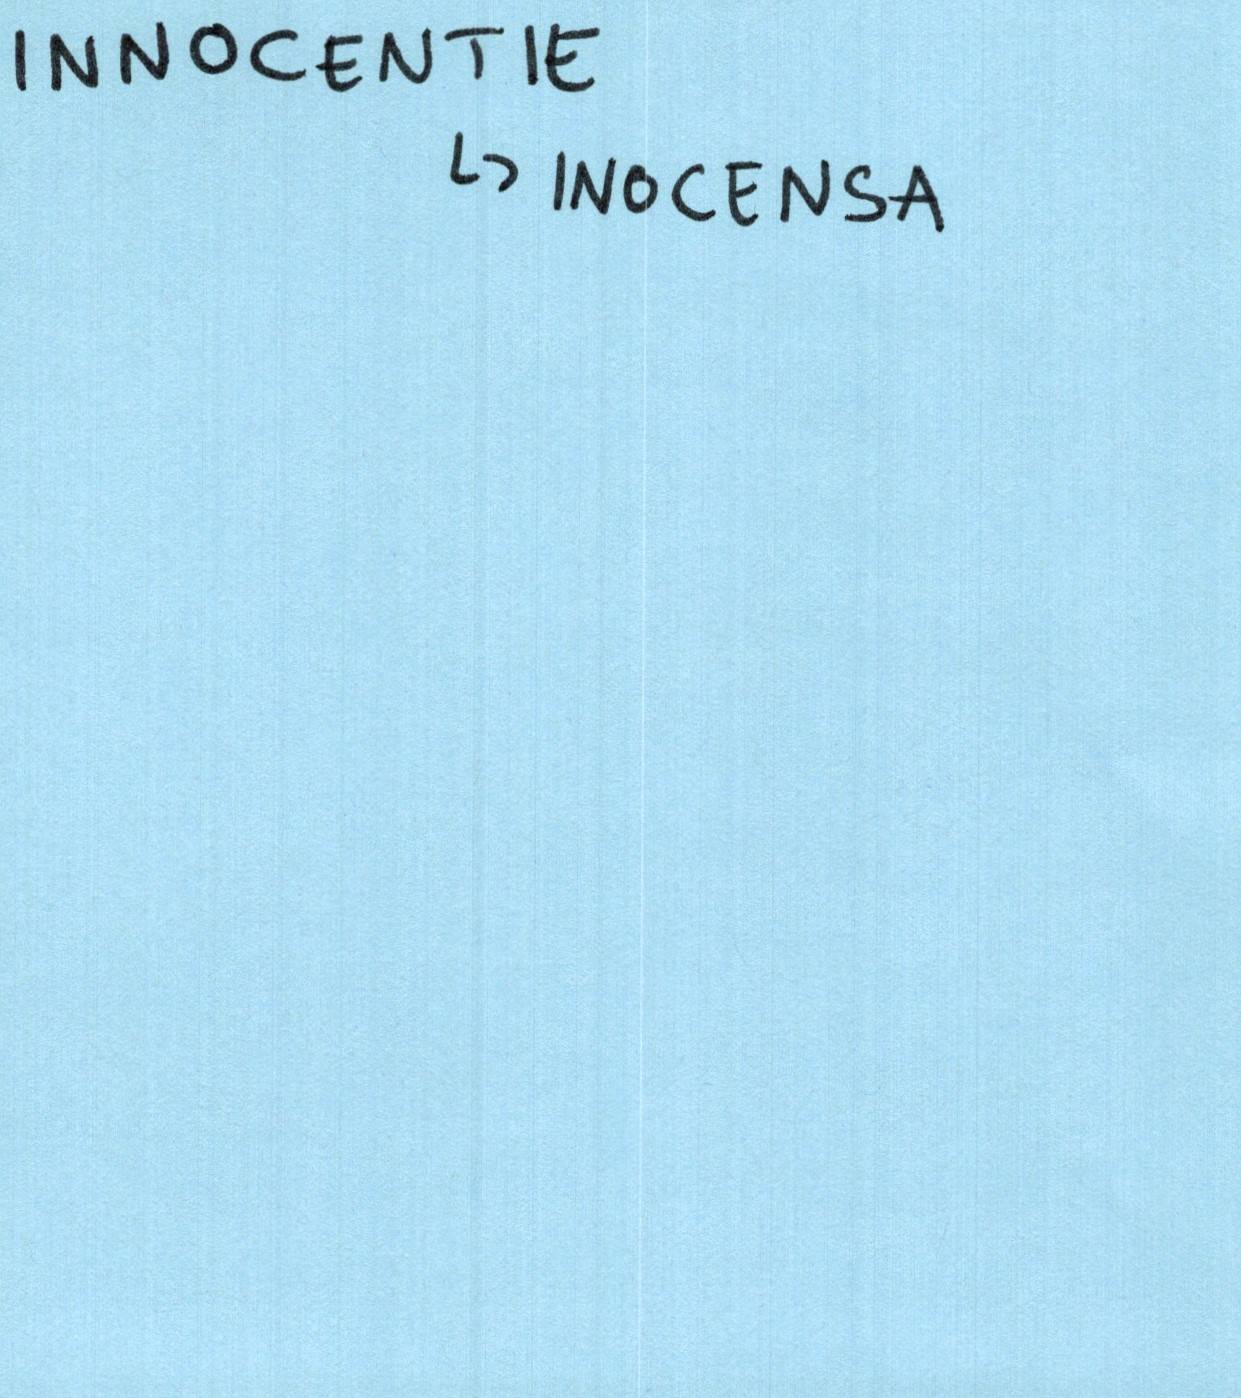 INNOCENTIE
↳ INOCENSA